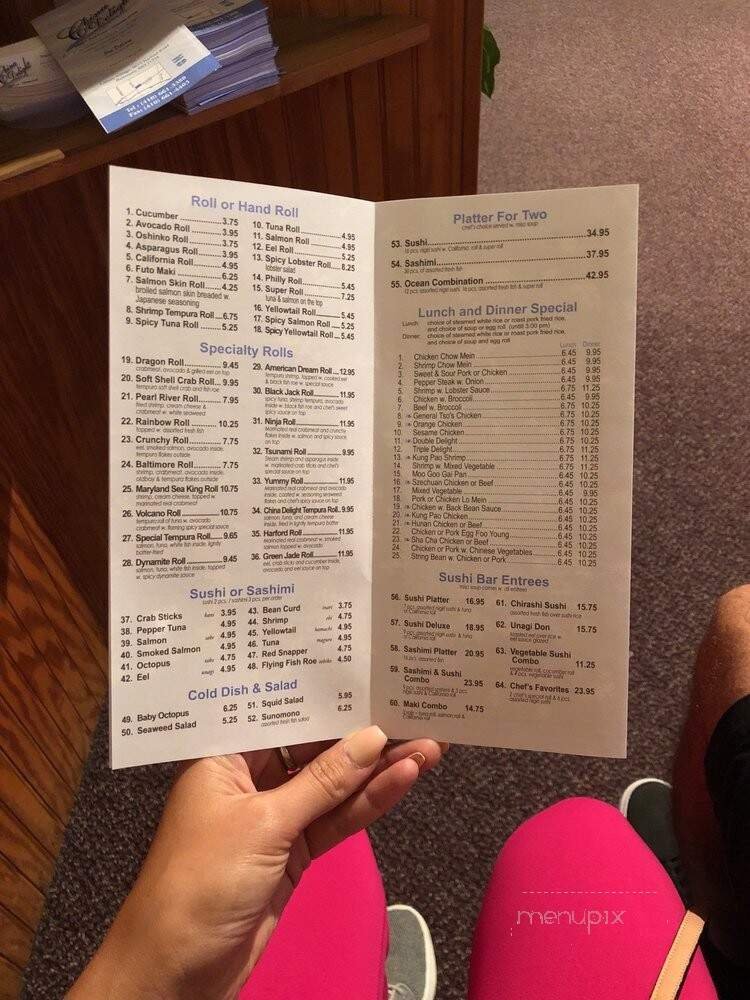 China
Delight
Tel: (410) 661-3380
Fax: (410) 661-4403
Roll or Hand Roll
1. Cucumber 3.75
2. Avocado Roll 3.95
3. Oshinko Roll 3.75
4. Asparagus Roll 3.95
5. California Roll 4.95
6. Futo Maki 6.25
7. Salmon Skin Roll 4.25
broiled salmon skin breaded w.
Japanese seasoning
8. Shrimp Tempura Roll 6.75
9. Spicy Tuna Roll 5.25
10. Tuna Roll 4.95
11. Salmon Roll 4.95
12. Eel Roll 5.25
13. Spicy Lobster Roll 8.25
lobster salad
14. Philly Roll 5.45
15. Super Roll 7.25
tuna & salmon on the top
16. Yellowtail Roll 5.45
17. Spicy Salmon Roll 5.25
18. Spicy Yellowtail Roll 5.45
Specialty Rolls
19. Dragon Roll 9.45
crabmeat, avocado & grilled eel on top
20. Soft Shell Crab Roll 9.95
tempura soft shell crab and fish roe
21. Pearl River Roll 7.95
fried shrimp, cream cheese &
crabmeat w. white seaweed
22. Rainbow Roll 10.25
topped w. assorted fresh fish
23. Crunchy Roll 7.75
eel, smoked salmon, avocado inside,
tempura flakes outside
24. Baltimore Roll 7.75
shrimp, crabmeat, avocado inside,
oldbay & tempura flakes outside
25. Maryland Sea King Roll 10.75
shrimp, cream cheese, topped w.
marinated real crabmeat
26. Volcano Roll 10.75
tempura roll of tuna w. avocado,
crabmeat w. flaming spicy special sauce
27. Special Tempura Roll 9.65
salmon, tuna, white fish inside, lightly
batter-fried
28. Dynamite Roll 9.45
salmon, tuna, white fish inside, topped
w. spicy dynamite sauce
29. American Dream Roll 12.95
tempura shrimp, topped w. cooked eel
& black fish roe w. special sauce
30. Black Jack Roll 11.95
spicy tuna, shrimp tempura, avocado
inside w. black fish roe and chef's sweet
spicy sauce on top
31. Ninja Roll 11.95
Marinated real crabmeat and crunchy
flakes inside w. salmon and spicy sauce
on top
32. Tsunami Roll 9.95
Steam shrimp and asparagus inside
w. marinated crab sticks and chef's
special sauce on top
33. Yummy Roll 11.95
Marinated real crabmeat and avocado
inside, coated w. seasoning seaweed
flakes and chef's spicy sauce on top
34. China Delight Tempura Roll 9.95
salmon, tuna, and cream cheese
inside, fried in lightly tempura batter
35. Harford Roll 11.95
Marinated real crabmeat w. smoked
salmon topped w. avocado
36. Green Jade Roll 11.95
eel, crab sticks and cucumber inside,
avocado and eel sauce on top
Sushi or Sashimi
sushi 2 pcs. / sashimi 3 pcs. per order
37. Crab Sticks kani 3.95
38. Pepper Tuna 4.95
39. Salmon sake 4.95
40. Smoked Salmon 4.95
41. Octopus tako 4.75
42. Eel unagi 4.95
43. Bean Curd inari 3.75
44. Shrimp ebi 4.75
45. Yellowtail hamachi 4.95
46. Tuna maguro 4.95
47. Red Snapper 4.75
48. Flying Fish Roe tobiko 4.50
Cold Dish & Salad
49. Baby Octopus 6.25
50. Seaweed Salad 5.25
51. Squid Salad 5.95
52. Sunomono 6.25
assorted fresh fish salad
Platter For Two
chef's choice served w. miso soup
53. Sushi 34.95
54. Sashimi 37.95
30 pcs. of assorted fresh fish
55. Ocean Combination 42.95
Lunch and Dinner Special
Lunch: choice of steamed white rice or roast pork fried rice,
and choice of soup or egg roll (until 3:00 pm)
Dinner: choice of steamed white rice or roast pork fried rice,
and choice of soup and egg roll
Lunch Dinner
1. Chicken Chow Mein 6.45 9.95
2. Shrimp Chow Mein 6.45 9.95
3. Sweet & Sour Pork or Chicken 6.45 9.95
4. Pepper Steak w. Onion 6.45 9.95
5. Shrimp w. Lobster Sauce 6.75 11.25
6. Chicken w. Broccoli 6.45 9.95
7. Beef w. Broccoli 6.75 10.25
8. General Tso's Chicken 6.75 10.25
9. Orange Chicken 6.75 10.25
10. Sesame Chicken 6.75 10.25
11. Double Delight 6.75 10.25
12. Triple Delight 6.75 11.25
13. Kung Pao Shrimp 6.75 11.25
14. Shrimp w. Mixed Vegetable 6.75 11.25
15. Moo Goo Gai Pan 6.45 10.25
16. Szechuan Chicken or Beef 6.45 10.25
17. Mixed Vegetable 6.45 9.95
18. Pork or Chicken Lo Mein 6.45 10.25
19. Chicken w. Back Bean Sauce 6.45 10.25
20. Kung Pao Chicken 6.45 10.25
21. Hunan Chicken or Beef 6.45 10.25
22. Chicken or Pork Egg Foo Young 6.45 10.25
23. Sha Cha Chicken or Beef 6.45 10.25
24. Chicken or Pork w. Chinese Vegetables 6.45 10.25
25. String Bean w. Chicken or Pork 6.45 10.25
Sushi Bar Entrees
miso soup comer w. all entrees
56. Sushi Platter 16.95
7 pcs. assorted nigiri sushi & tuna
or California roll
57. Sushi Deluxe 18.95
58. Sashimi Platter 20.95
59. Sashimi & Sushi
Combo 23.95
60. Maki Combo 14.75
61. Chirashi Sushi 15.75
assorted fresh fish over sushi rice
62. Unagi Don 15.75
roasted eel over rice w.
eel sauce glazed
63. Vegetable Sushi
Combo 11.25
vegetable roll, cucumber roll
64. Chef's Favorites 23.95
menupix